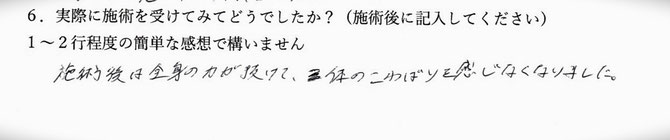 6．実際に施術を受けてみてどうでしたか？（施術後に記入してください）
1～2行程度の簡単な感想で構いません
施術後は全身の力が抜けて、体のこわばりを感じなくなりました。